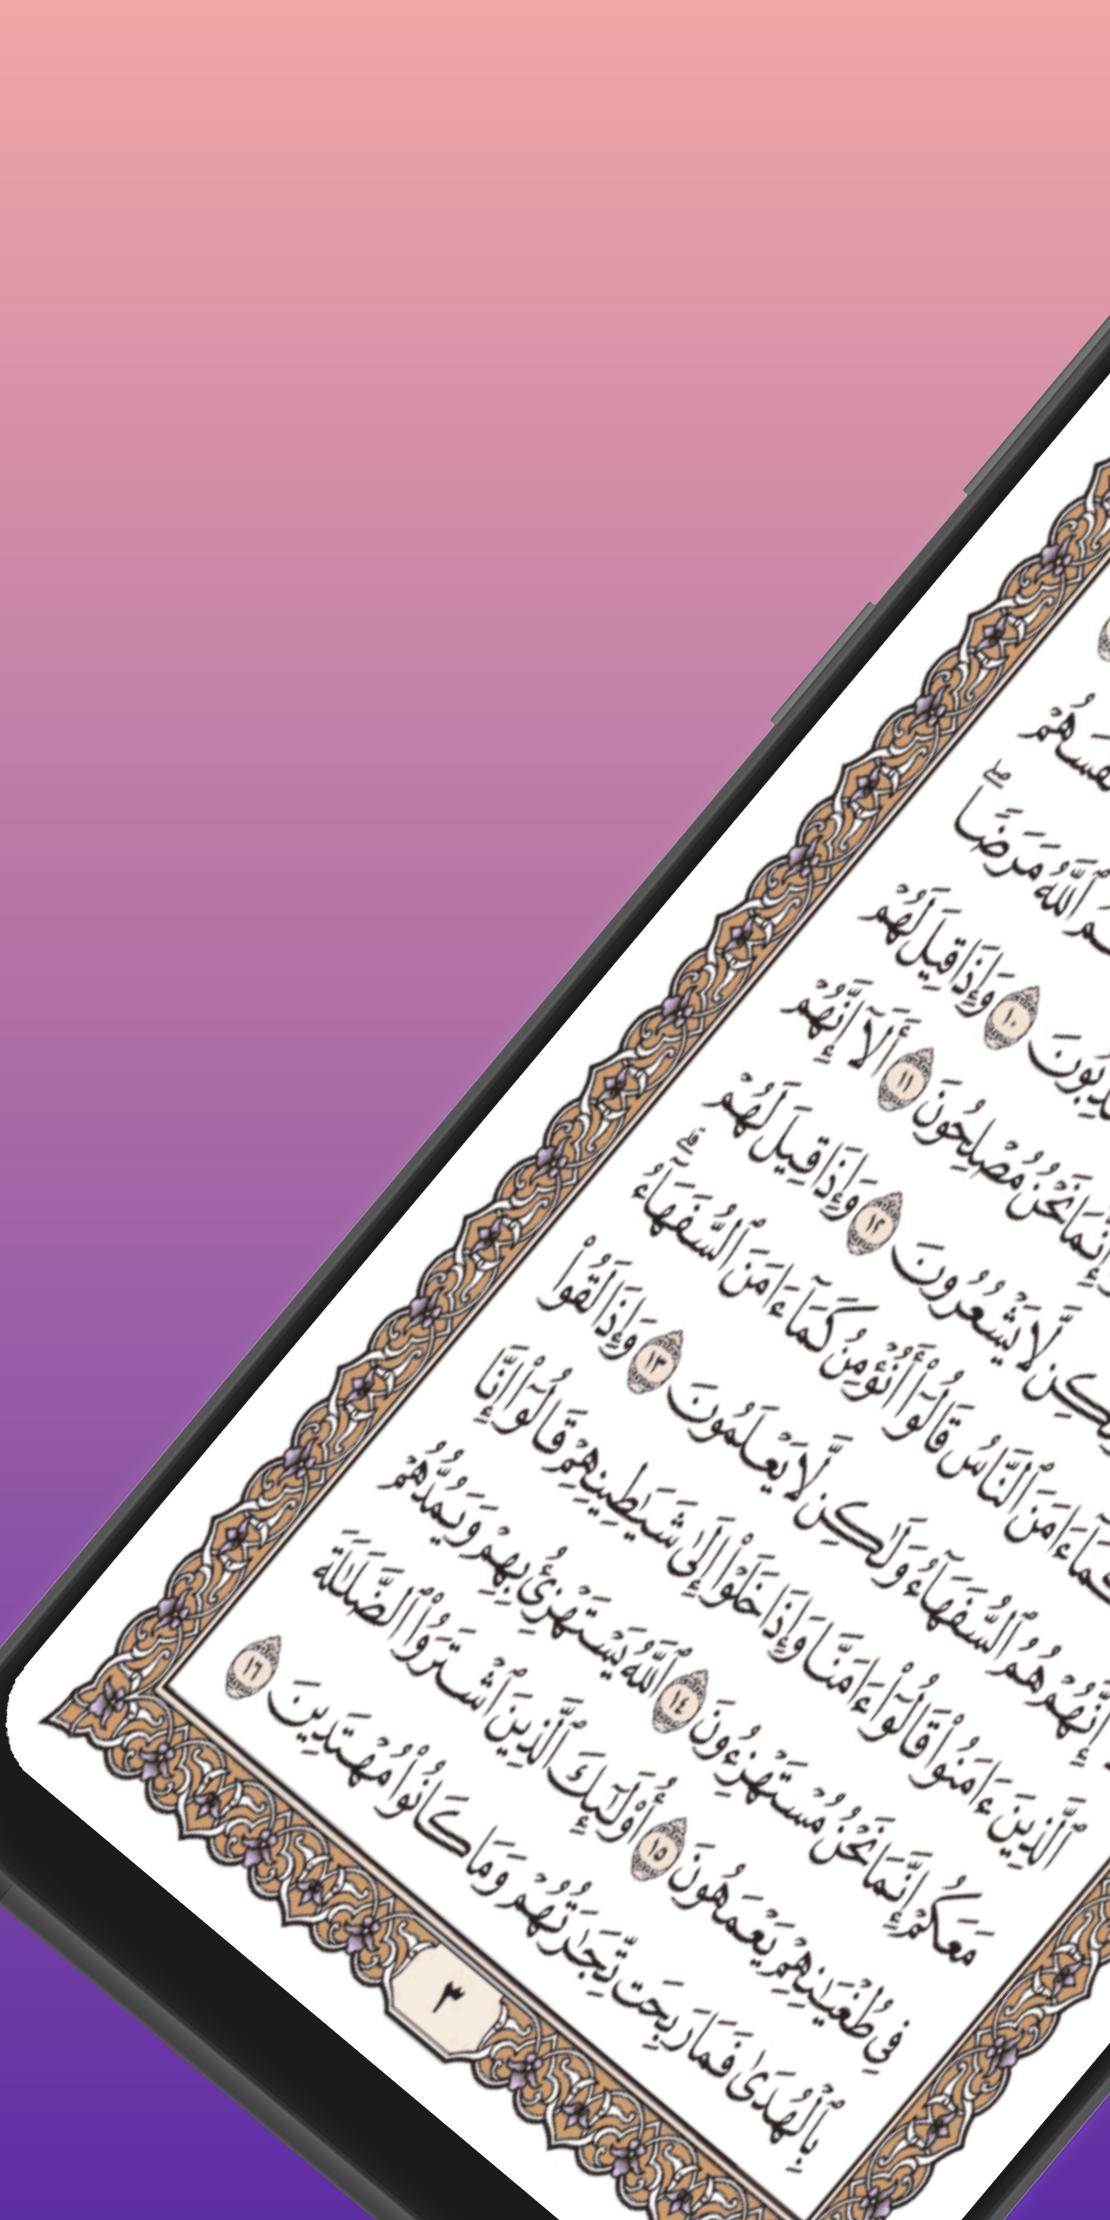 ١٠
فُسَهُمْ
مَ ٱللَّهُ مَرَضًۭا ۖ
ذِبُونَ ١٠ وَإِذَا قِيلَ لَهُمْ
إِنَّمَا نَحْنُ مُصْلِحُونَ ١١ أَلَآ إِنَّهُمْ
لَّا يَشْعُرُونَ ١٢ وَإِذَا قِيلَ لَهُمْ
ءَامَنَ ٱلنَّاسُ قَالُوٓا۟ أَنُؤْمِنُ كَمَآ ءَامَنَ ٱلسُّفَهَآءُ ۗ
إِنَّهُمْ هُمُ ٱلسُّفَهَآءُ وَلَـٰكِن لَّا يَعْلَمُونَ ١٣ وَإِذَا لَقُوا۟
ٱلَّذِينَ ءَامَنُوا۟ قَالُوٓا۟ ءَامَنَّا وَإِذَا خَلَوْا۟ إِلَىٰ شَيَـٰطِينِهِمْ قَالُوٓا۟ إِنَّا
مَعَكُمْ إِنَّمَا نَحْنُ مُسْتَهْزِءُونَ ١٤ ٱللَّهُ يَسْتَهْزِئُ بِهِمْ وَيَمُدُّهُمْ
فِى طُغْيَـٰنِهِمْ يَعْمَهُونَ ١٥ أُو۟لَـٰٓئِكَ ٱلَّذِينَ ٱشْتَرَوُا۟ ٱلضَّلَـٰلَةَ
بِٱلْهُدَىٰ فَمَا رَبِحَت تِّجَـٰرَتُهُمْ وَمَا كَانُوا۟ مُهْتَدِينَ ١٦
٣